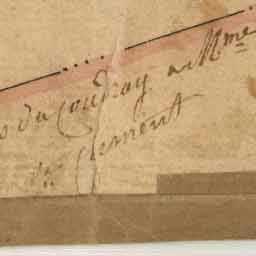 du Coudray a Mme
Clement